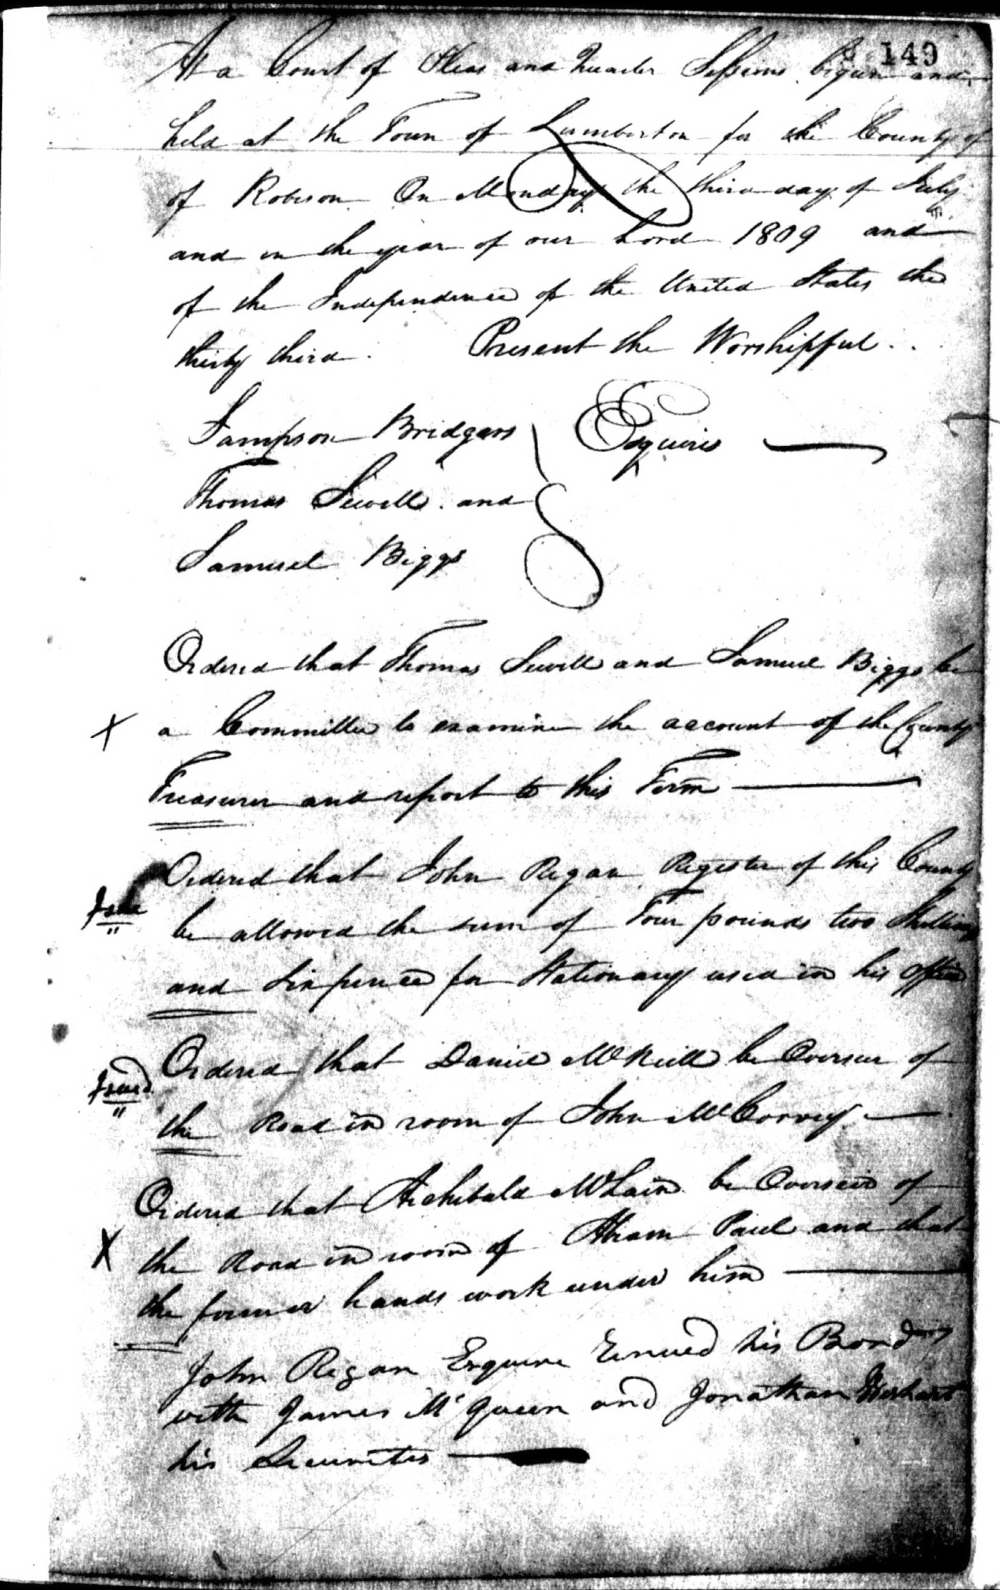 149
At a Court of Pleas and Quarter Sessions begun and
held at the Town of Lumberton for the County of
of Robeson On Monday the third day of July
and in the year of our Lord 1809 and
of the Independence of the United States the
thirty third. Present the Worshipful
Sampson Bridgers } Esquires
Thomas Sewell and
Samuel Biggs
Ordered that Thomas Sewell and Samuel Biggs be
X a Committee to examine the account of the County
Treasurer and report to this Term
Ordered that John Regan Register of this County
be allowed the sum of Four pounds two Shillings
and Sixpence for Stationary used in his Office
Issd. Ordered that Daniel McNeill be Overseer of
the Road in room of John McCorvey
Ordered that Archibald McLain be Overseer of
X the Road in room of Abram Paul and that
the former hands work under him
John Regan Esquire Renued his Bond
with James McQueen and Jonathan
his Securities